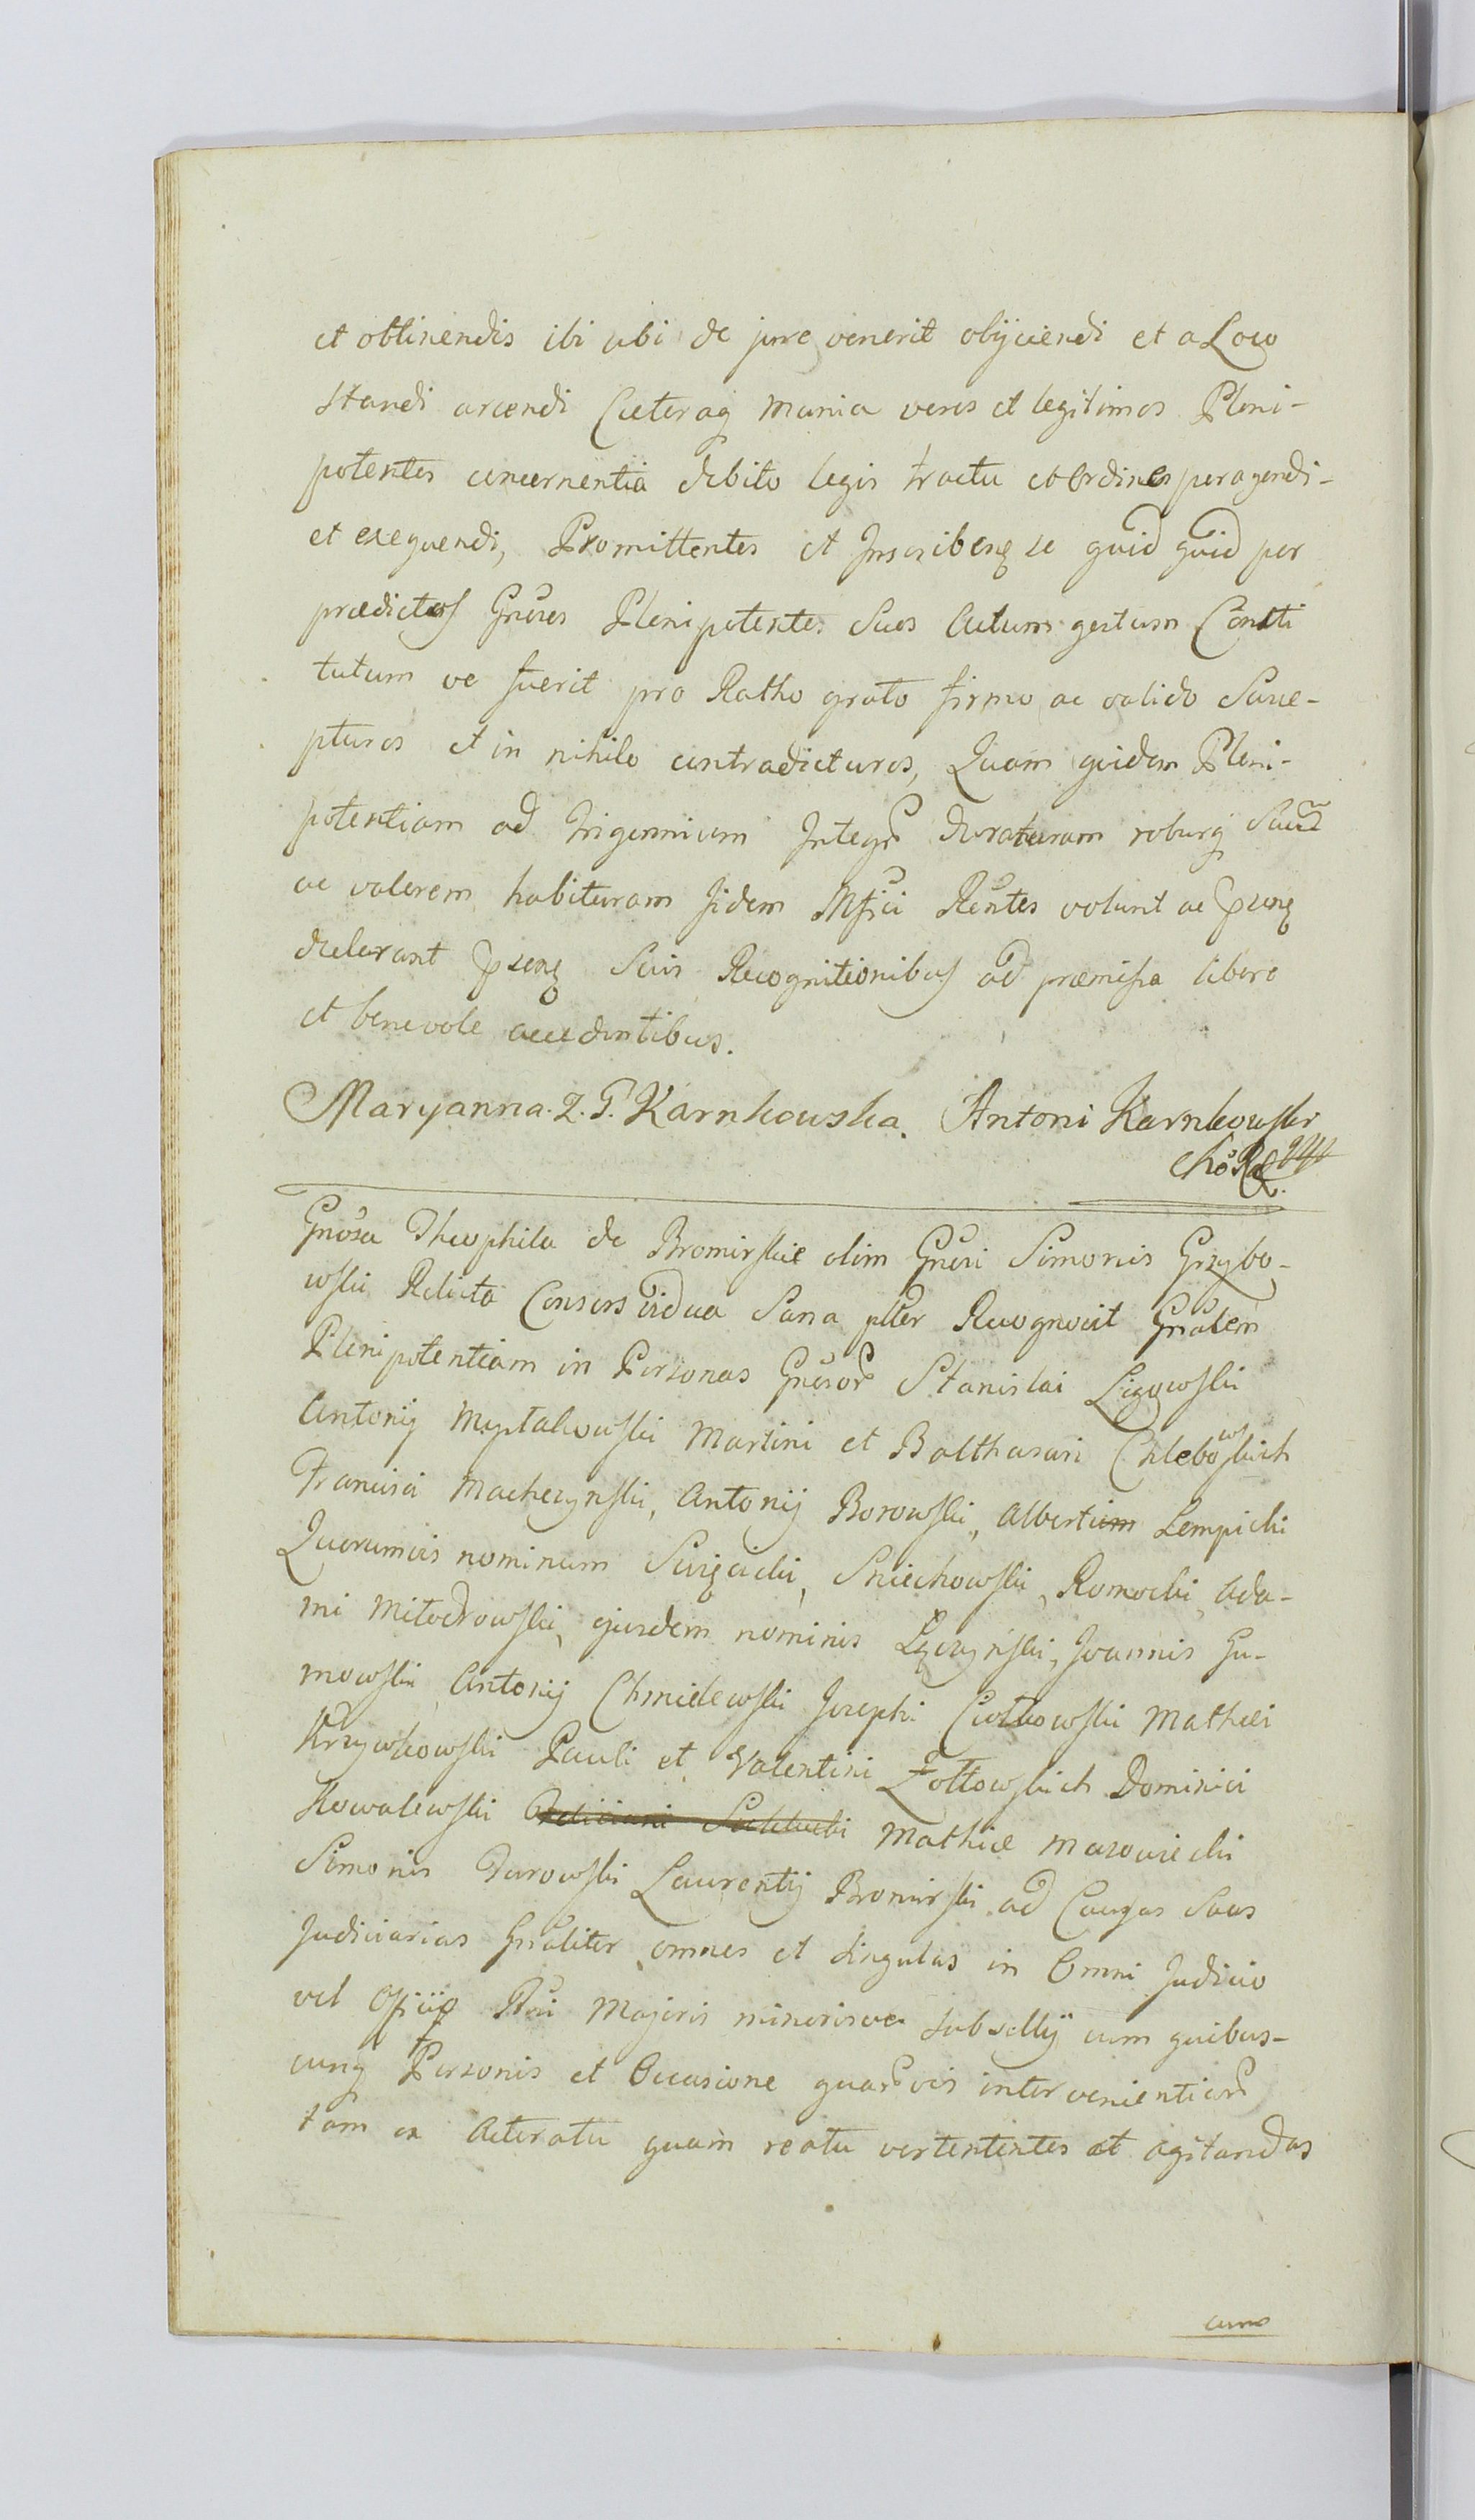 et obtinendis ibi ubi de jure venerit obijciendi et a Loco
standi arcendi Cæteraq munia veros et legitimos Pleni-
potentes concernentia debito legis tractu et Ordine peragendi-
et exequendi, Promittentes et Inscribenq se quid quid per
prædictos Gnĕsos Plenipotentes Suos Actum gestum Consti
tutum ve fuerit pro Ratho grato firmo ac valido Susce-
pturos et in nihilo contradicturos, Quam quidem Pleni-
potentiam ad Trigennium Integr duraturam roburq Suũ
ac valorem habituram Iidem Mfĭci Rĕntes volunt ac
declarant Suis Recognitionibus ad præmissa libere
et benevole accedentibus.
Maryanna. Z. T. Karnkowska. Antoni Karnkowski
Gnŏsa Theophila de Bromirskie olim Gnĕsi Simonis Grzybo-
wski Relicta Consors vidua Sana plter Recognovit Gnălem
Plenipotentiam in Personas Gnĕsor Stanislai Ligowski
Antonij Mystalkowski Martini et Balthasari Chlebowskich
Francisci Macheczynski, Antonij Borowski, Alberti Lempicki
Quorumvis nominum Swięcicki, Sniechowski, Romocki, Ada-
mi Miłodrowski, ejusdem nominis Łęczyński, Joannis Gu-
mowski Antonij Chmielewski Josephi Ciołkowski Mathei
Krzywkowski Pauli et Valentini Żołtowskich Dominici
Kowalewski Mathiæ Mazowiecki
Simonis Turowski Laurentij Bromirski ad Causas Suas
Judiciarias Gnăliter omnes et singulas in Omni Judicio
vel Offiio Rni Majoris minorisve subsellij cum quibus-
cunq Personis et Occasione quar͂vis intervenientium
tam ex Actoratu quam reatu vertententes et agitandas
cum